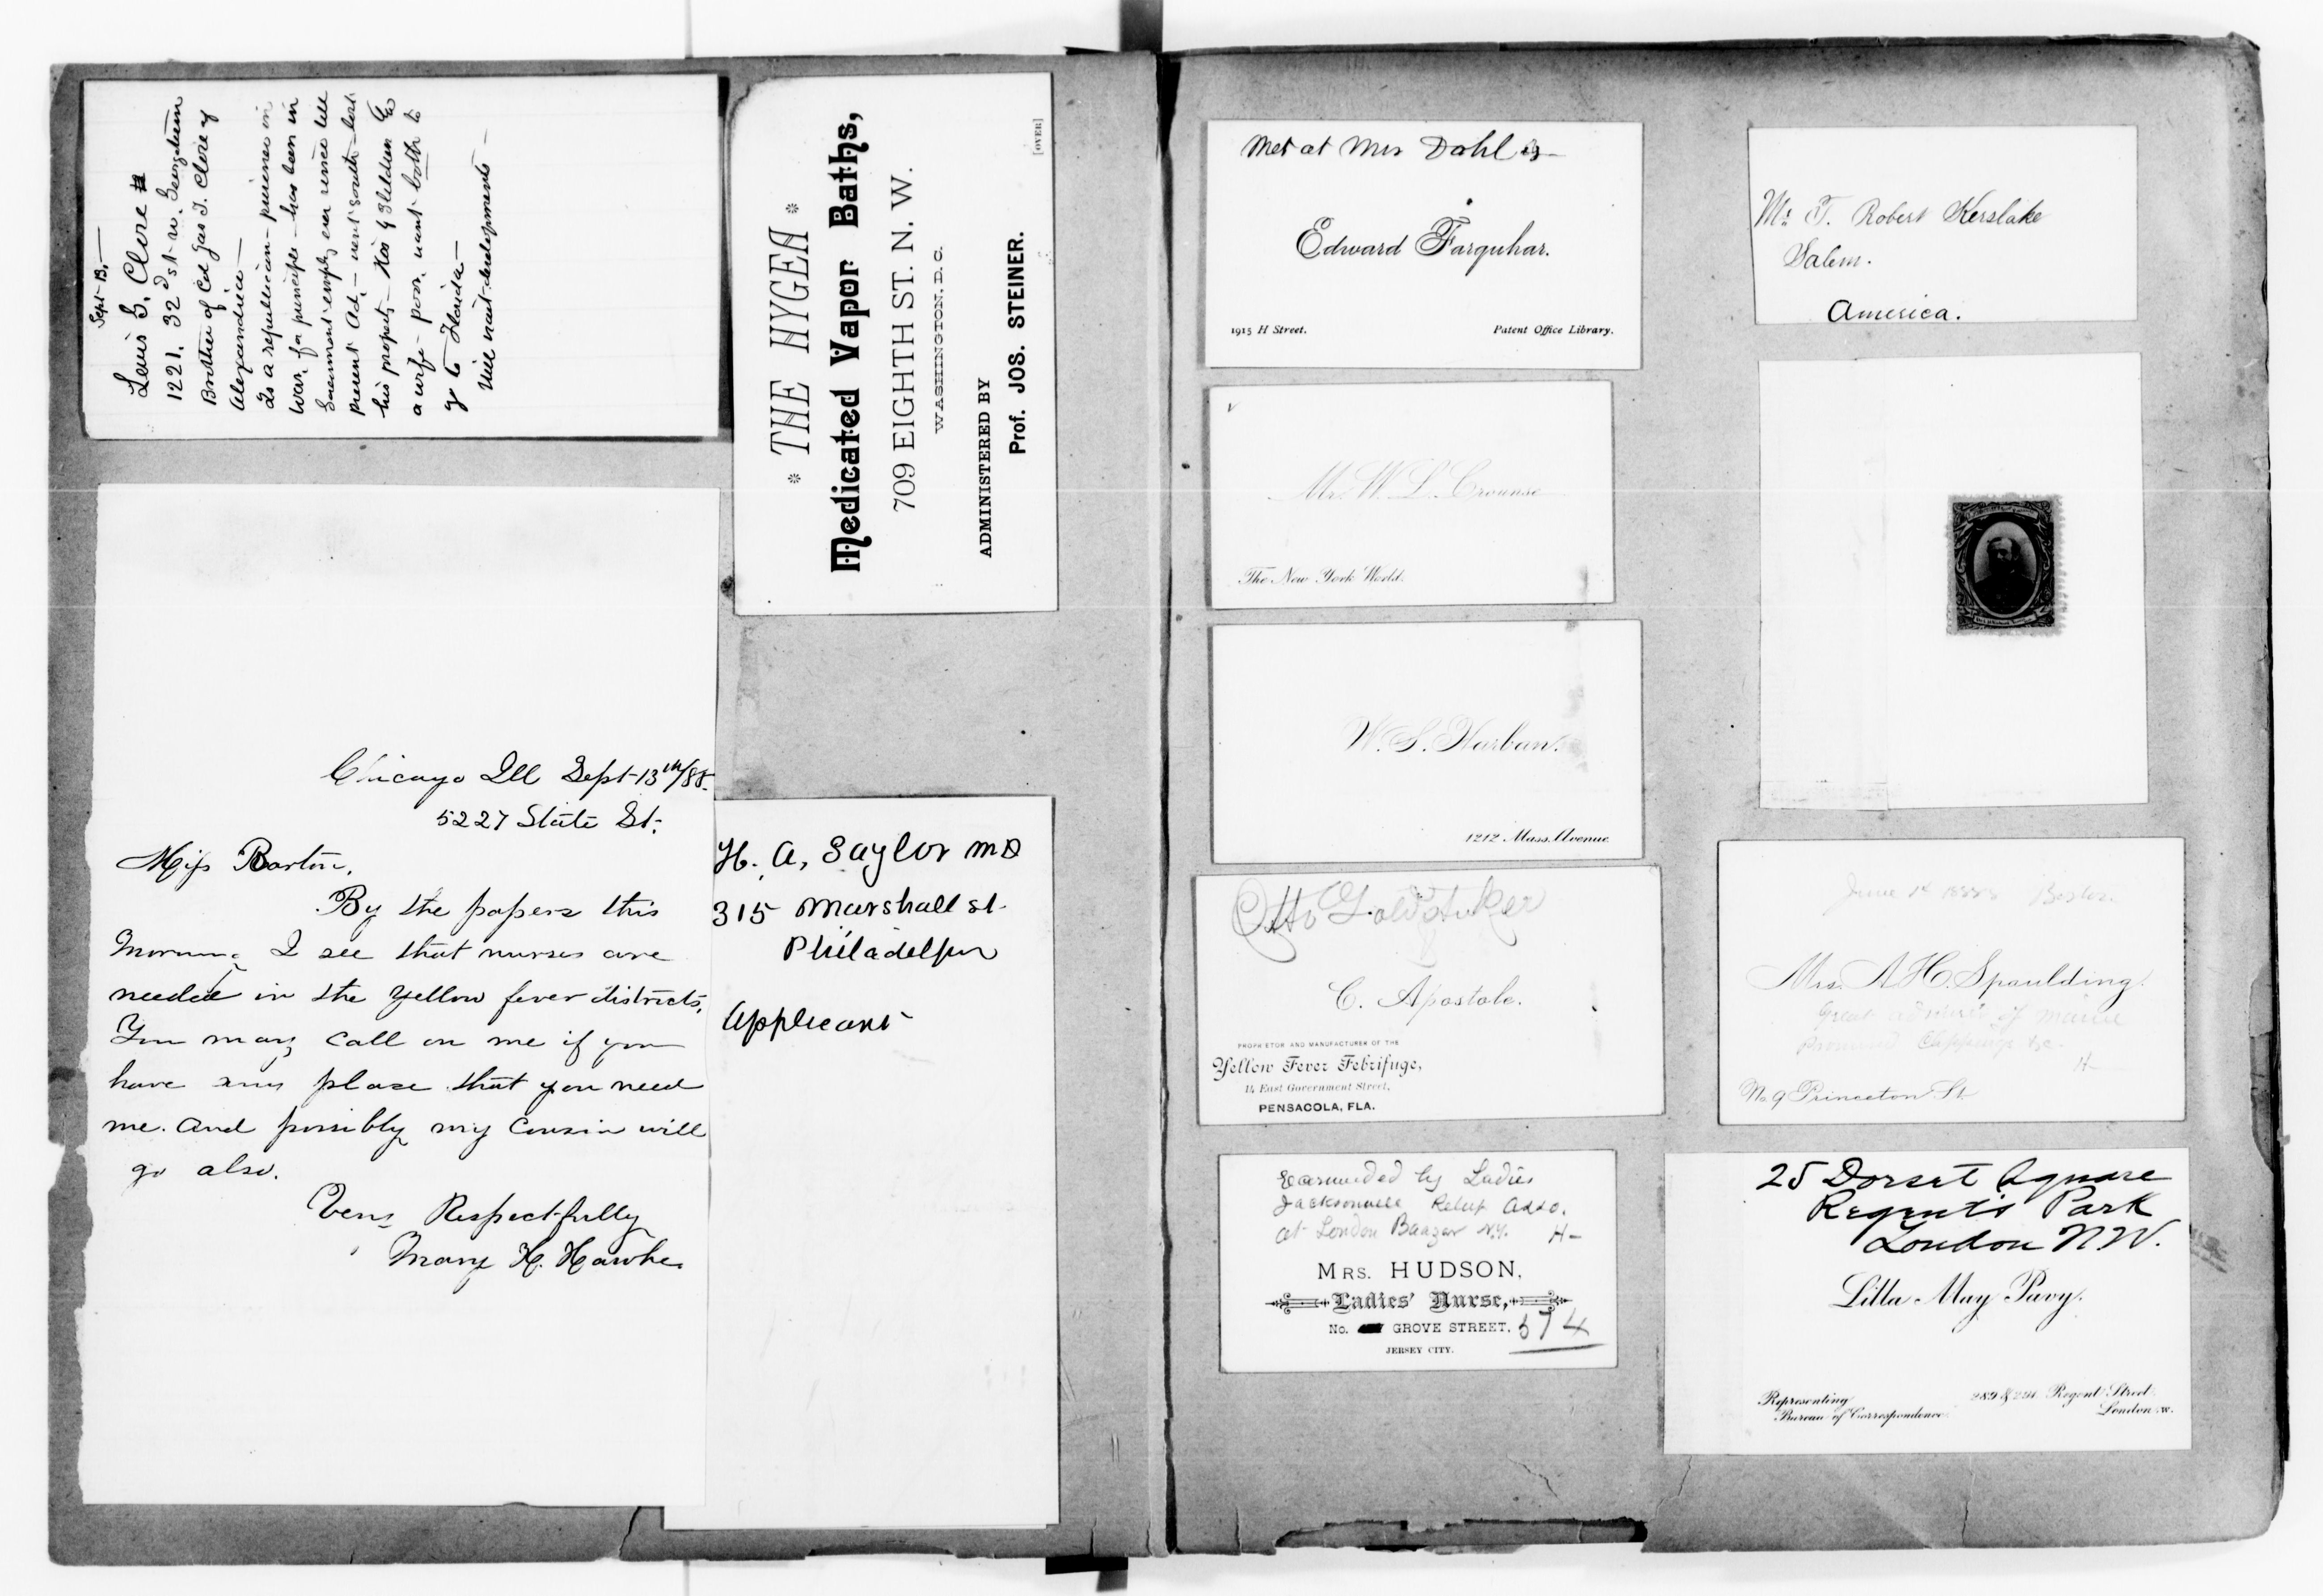 Sept 13,
Lewis S. Clore
1221. 32d st. w. Georgetown
Brother of Col Jas T. Clore of
Alexandria
Is a republican - prisoner in
war, for principle - has been in
Government employ ever since till
present Ad, - went south - lost
his property - Has 9 children &
a wife - poor, want both to
go to Florida -
Will wait developments -
* THE HYGEA *
Medicated Vapor Baths,
709 EIGHTH ST. N. W.
WASHINGTON, D. C.
ADMINISTERED BY
Prof. JOS. STEINER.
[OVER]
Chicago Ill Sept 13th/88.
5227 State St.
Miss Barton,
By the papers this
Morning I see that nurses are
needed in the Yellow fever districts,
You may call on me if you
have any place that you need
me. And possibly my Cousin will
go also.
Very Respectfully
Mary H. Hawke.
H. A. Saylor MD
315 Marshall st.
Philadelphia
Applicant
Met at Mrs Dahl
Edward Farquhar.
1915 H Street.
Patent Office Library.
Mr. W. L. Crounse
The New York World.
W. S. Harban.
1212 Mass. Avenue
Otto
C. Apostole.
PROPRIETOR AND MANUFACTURER OF THE
Yellow Fever Febrifuge,
14 East Government Street,
PENSACOLA, FLA.
by Ladies
Jacksonville Relief Asso.
at London Bazaar N.Y. H-
MRS. HUDSON,
Ladies' Nurse,
No. GROVE STREET, 574
JERSEY CITY.
Mr. T. Robert Kerslake
Salem.
America.
June 1st Boston
Mrs. A. H. Spaulding.
Great admirer of
Promised Clippings &c.
H-
No. 9 Princeton St.
25 Dorset Square
Regent's Park
London N.W.
Lilla May Pavy.
Representing
Bureau of Correspondence
289 & 291 Regent Street
London W.